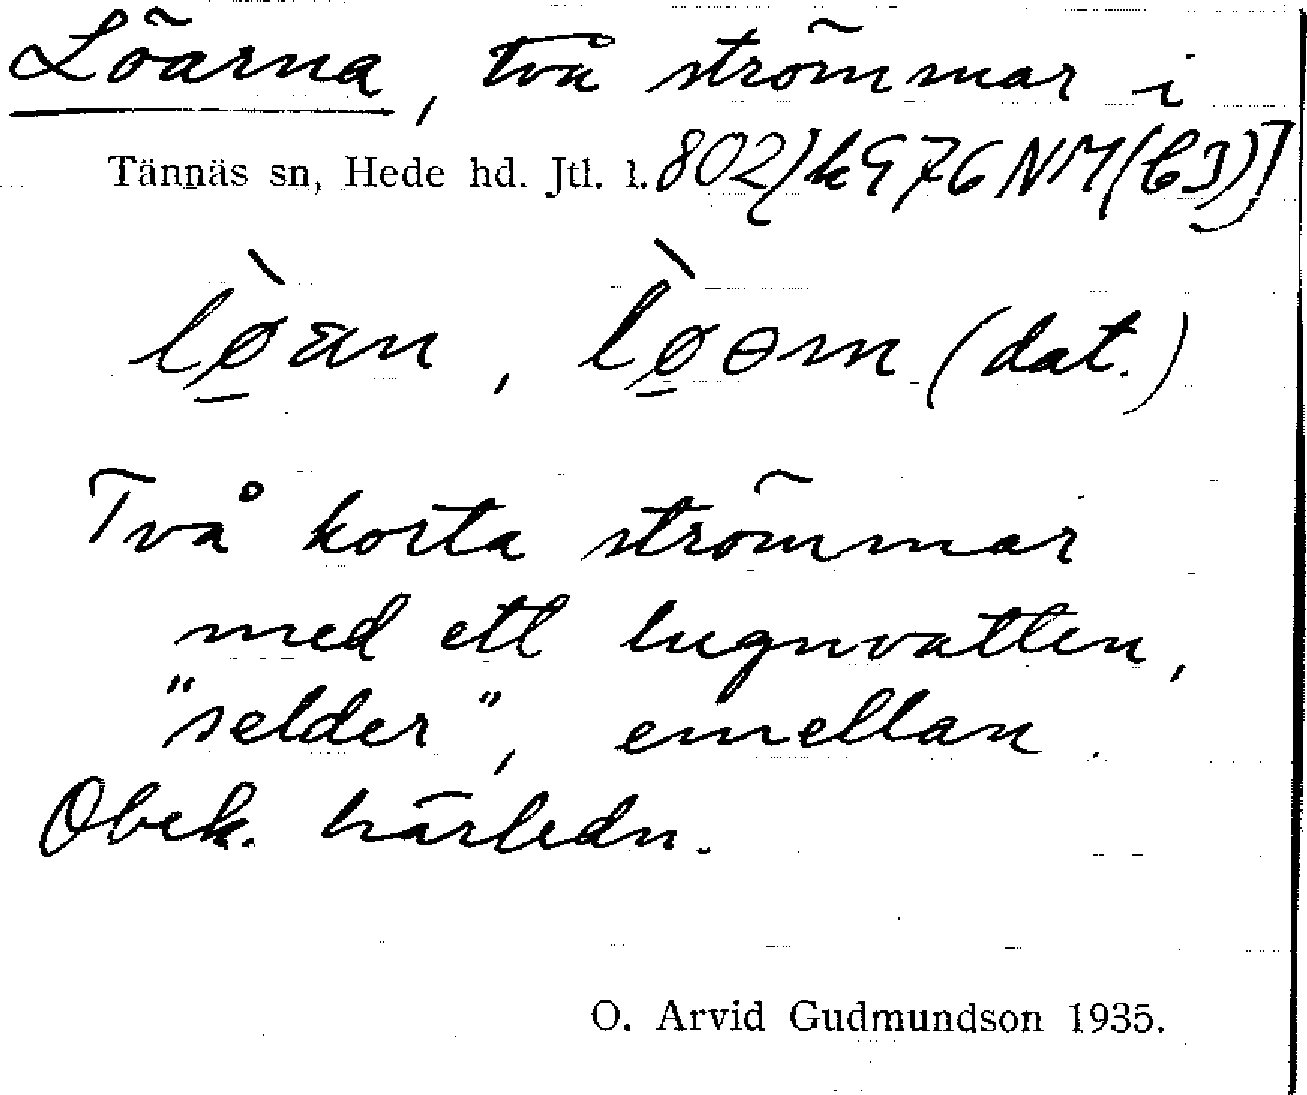 Löarna, två strömmar i
Tännäs sn, Hede hd. Jtl. l. 802]k976NM(63)]
lø̠̀an, lø̠̀ɵm (dat.)
Två korta strömmar
med ett lugnvatten,
"selder", emellan.
Obek. härledn.
O. Arvid Gudmundson 1935.